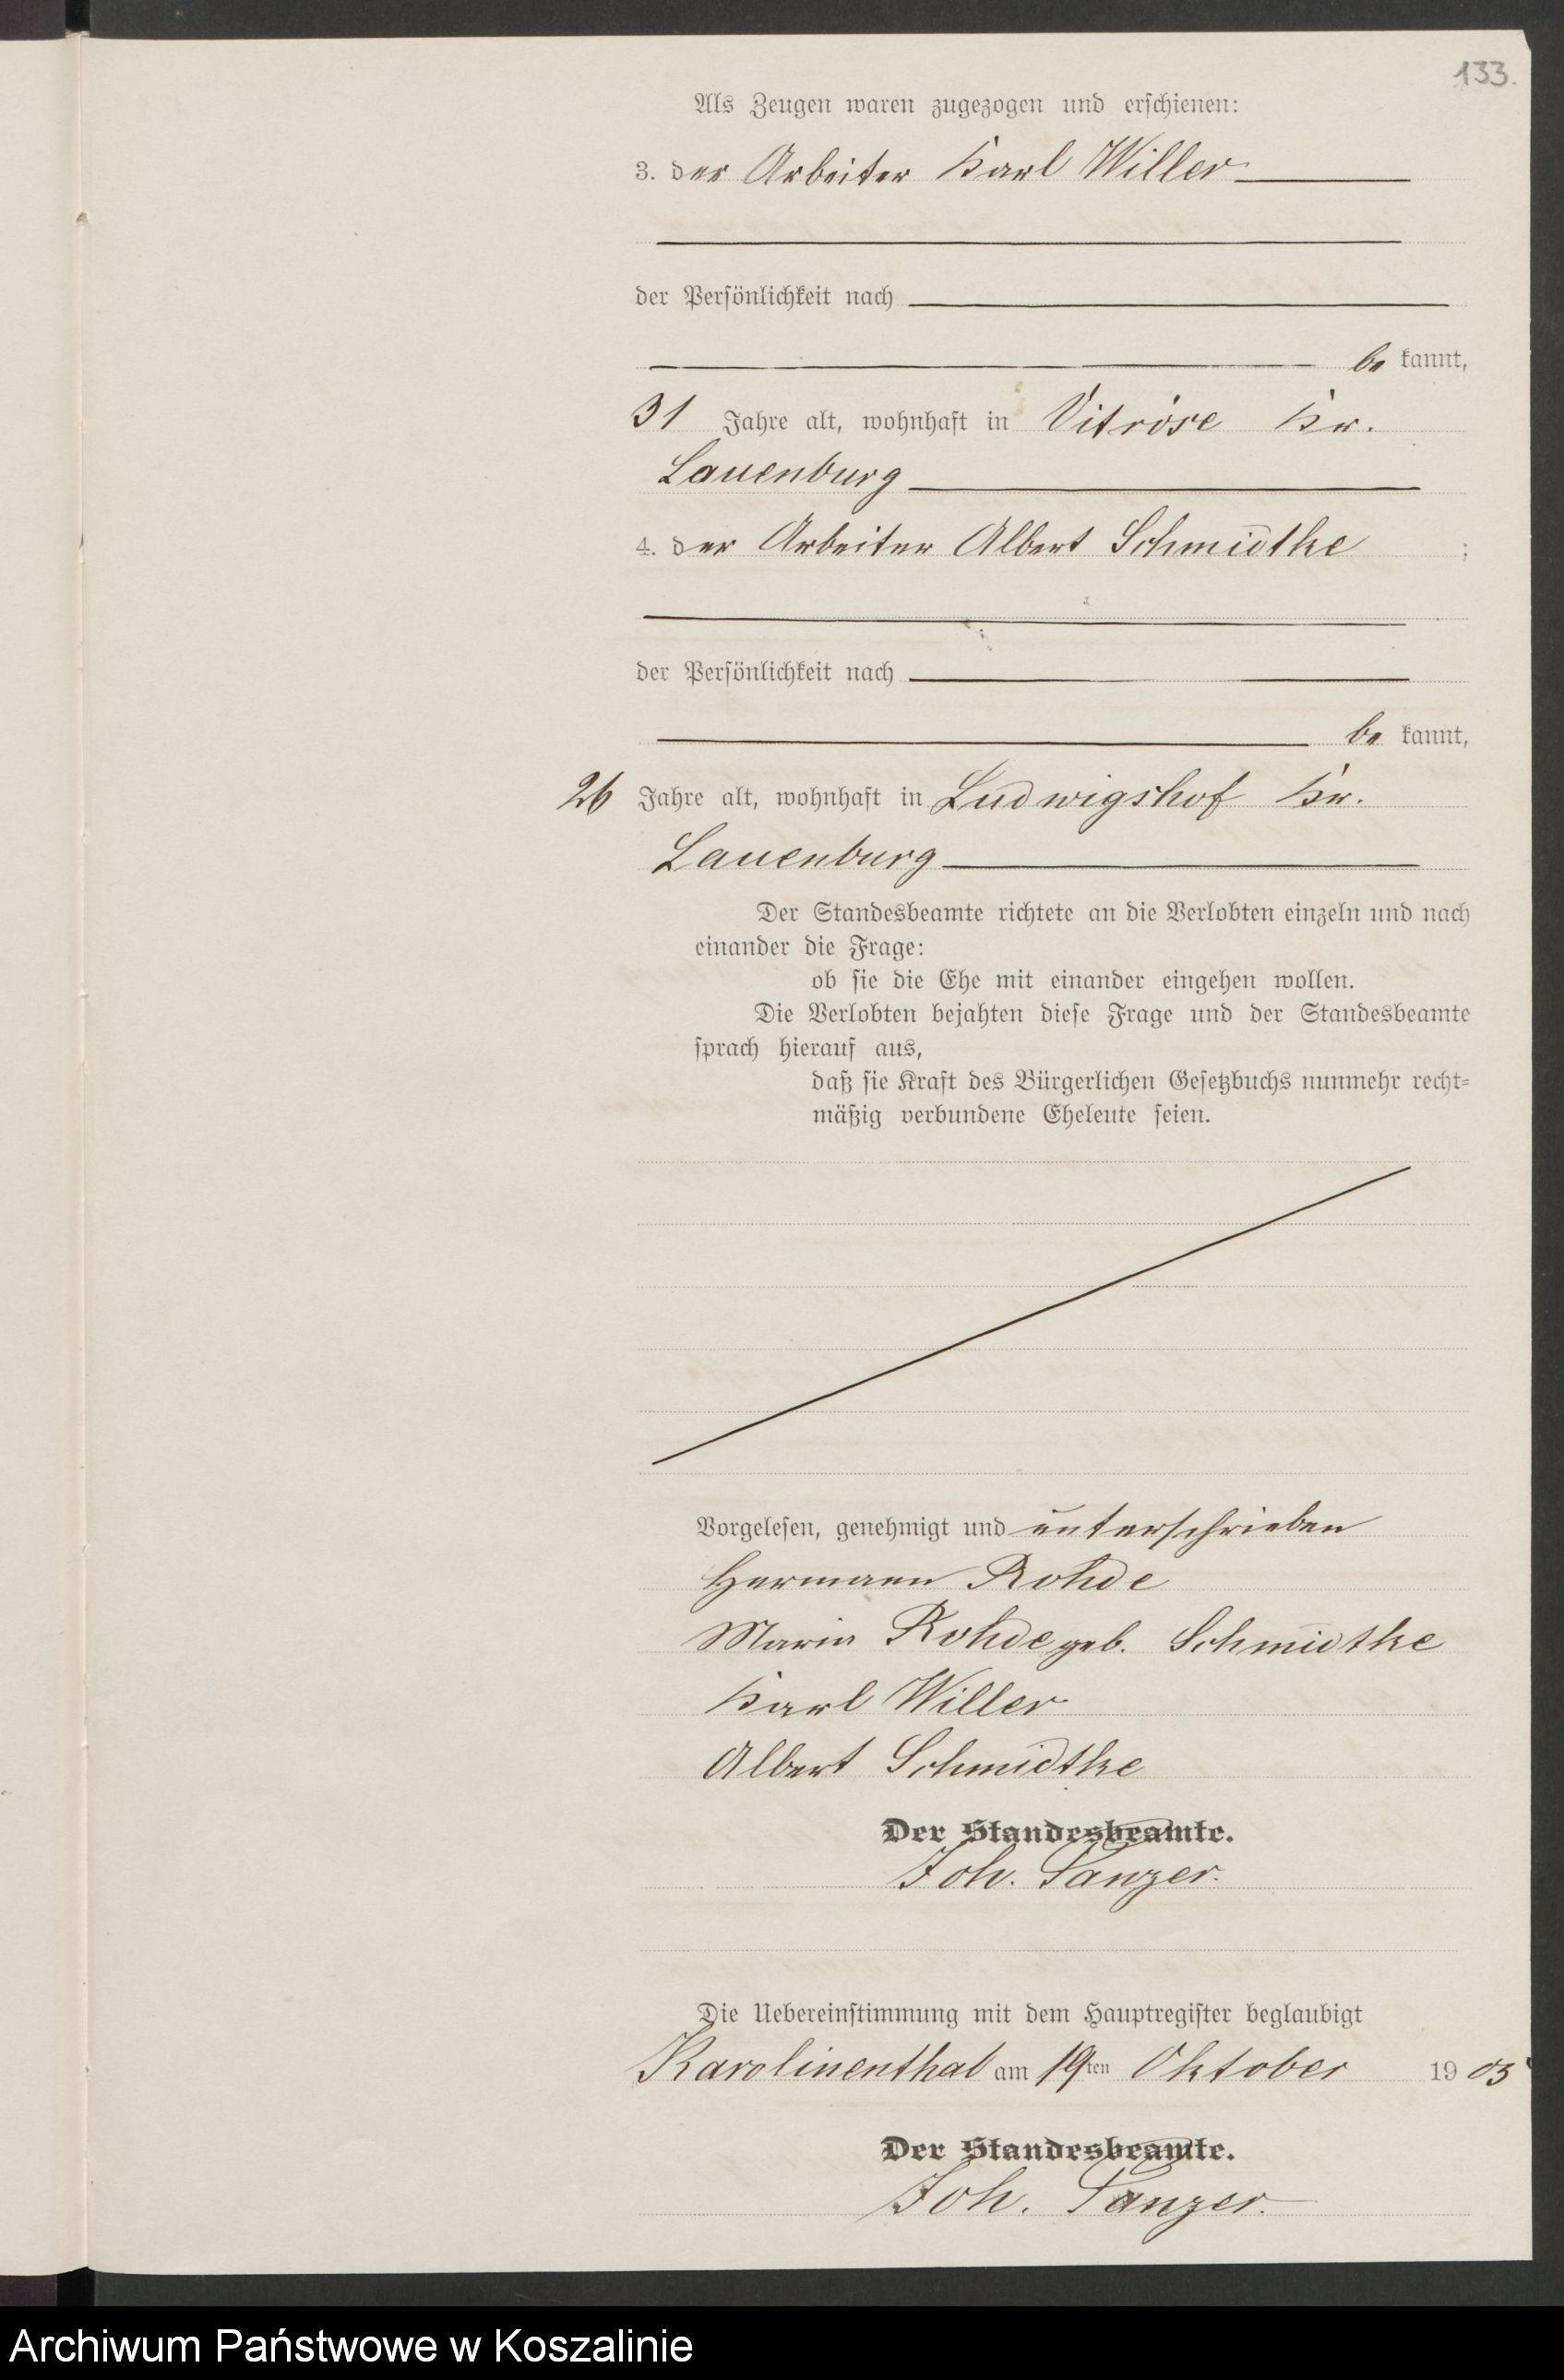 133.
Als Zeugen waren zugezogen und erschienen:
3. der Arbeiter Karl Willer
der Persönlichkeit nach
be kannt,
31 Jahre alt, wohnhaft in Vitröse Kr.
Lauenburg
4. der Arbeiter Albert Schmidtke ;
der Persönlichkeit nach
be kannt,
26 Jahre alt, wohnhaft in Ludwigshof Kr.
Lauenburg
Der Standesbeamte richtete an die Verlobten einzeln und nach
einander die Frage:
ob sie die Ehe mit einander eingehen wollen.
Die Verlobten bejahten diese Frage und der Standesbeamte
sprach hierauf aus,
daß sie Kraft des Bürgerlichen Gesetzbuchs nunmehr recht=
mäßig verbundene Eheleute seien.
Vorgelesen, genehmigt und unterschrieben
Hermann Rohde
Marie Rohde geb. Schmidtke
Karl Willer
Albert Schmidtke
Der Standesbeamte.
Joh. Panzer.
Die Uebereinstimmung mit dem Hauptregister beglaubigt
Karolinenthal am 19ten Oktober 1905
Der Standesbeamte.
Joh. Panzer.
Archiwum Państwowe w Koszalinie